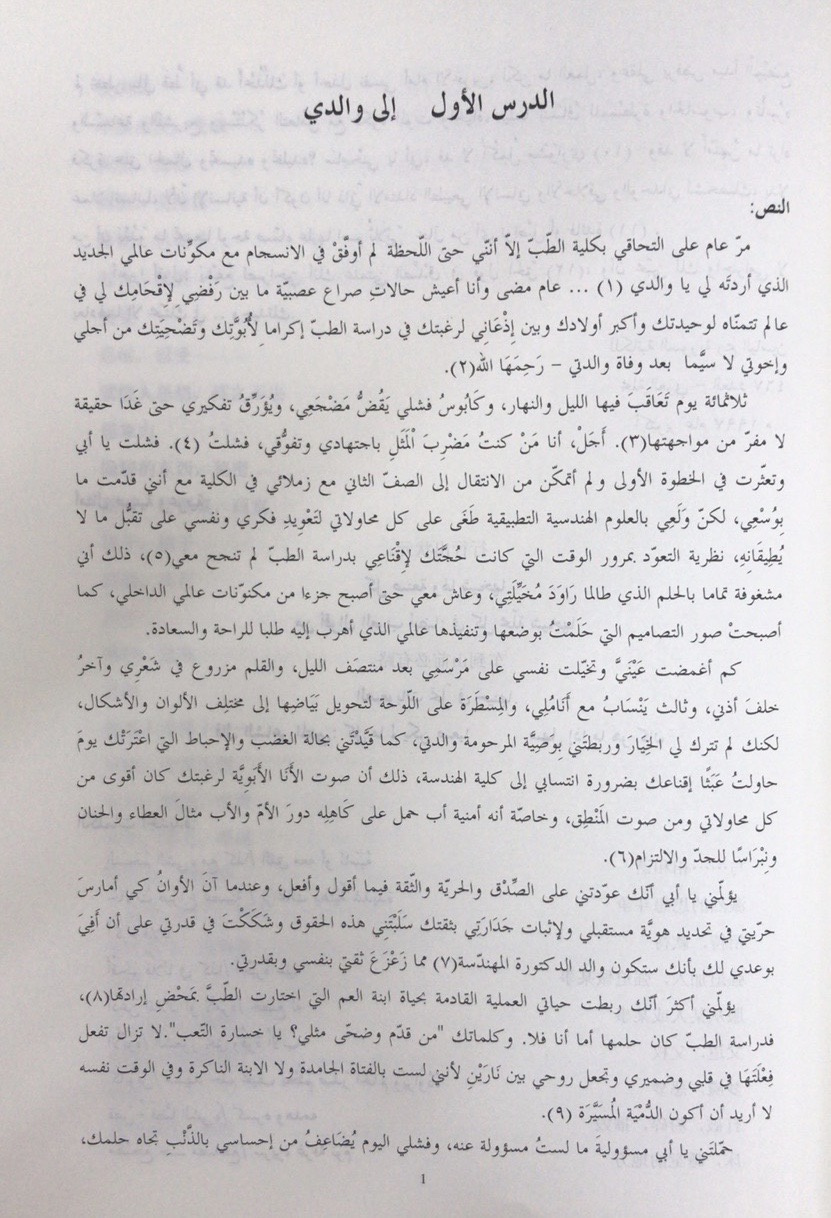 الدرس الأول إلى والدي
النص:
مرّ عام على التحاقي بكلية الطبّ إلاّ أنّني حتى اللّحظة لم أوفَّقْ في الانسجام مع مكوِّنات عالمي الجديد
الذي أردتَه لي يا والدي (١) ... عام مضى وأنا أعيش حالاتِ صراع عصبيّة ما بين رَفْضِي لِإقْحَامِك لي في
عالم تتمنّاه لوحيدتك وأكبر أولادك وبين إِذْعَانِي لرغبتك في دراسة الطبّ إكراما لِأُبُوَّتِك وتَضْحِيَتِك من أجلي
وإخوتي لا سيَّما بعد وفاة والدتي – رَحِمَهَا الله(٢).
ثلاثمائة يوم تَعَاقَبَ فيها الليل والنهار، وكَابُوسُ فشلي يَقُضُّ مَضْجَعِي، ويُؤَرِّقُ تفكيري حتى غَدَا حقيقة
لا مفرّ من مواجهتها(٣). أَجَلْ، أنا مَنْ كنتُ مَضْرِبَ اْلمَثَلِ باجتهادي وتفوُّقي، فشلتُ (٤). فشلت يا أبي
وتعثّرت في الخطوة الأولى ولم أتمكّن من الانتقال إلى الصفّ الثاني مع زملائي في الكلية مع أنني قدّمت ما
بِوُسْعِي، لكنّ وَلَعِي بالعلوم الهندسية التطبيقية طَغَى على كل محاولاتي لتَعْوِيدِ فكري ونفسي على تقبُّل ما لا
يُطِيقَانِهِ، نظرية التعوّد بمرور الوقت التي كانت حُجَّتَك لِإقْنَاعِي بدراسة الطبّ لم تنجح معي(٥)، ذلك أني
مشغوفة تماما بالحلم الذي طالما رَاوَدَ مُخَيِّلَتِي، وعاش معي حتى أصبح جزءا من مكنوّنات عالمي الداخلي، كما
أصبحتْ صور التصاميم التي حَلَمْتُ بوضعها وتنفيذها عالمي الذي أهرب إليه طلبا للراحة والسعادة.
كم أغمضت عَيْنَيَّ وتخيّلت نفسي على مَرْسَمِي بعد منتصَف الليل، والقلم مزروع في شَعْرِي وآخرُ
خلفَ أذني، وثالث يَنْسَابُ مع أَنَامُلِي، والمِسْطَرَة على اللّوحة لتحويل بَيَاضِها إلى مختلِف الألوان والأشكال،
لكنك لم تترك لي الخِيَار وربطتني بوَصِيَّة المرحومة والدتي، كما قَيَّدْتَني بحالة الغضب والإحباط التي اعْتَرَتْك يومَ
حاولتُ عَبَثًا إقناعك بضرورة انتسابي إلى كلية الهندسة، ذلك أن صوت الأَنَا الأَبَوِيَّة لرغبتك كان أقوى من
كل محاولاتي ومن صوت المَنْطِق، وخاصّة أنه أمنية أب حمل على كَاهِلِه دورَ الأمّ والأب مثالَ العطاء والحنان
ونِبْرَاسًا للجدّ والالتزام(٦).
يؤلمّني يا أبي أنّك عوّدتني على الصِّدْق والحريّة والثّقة فيما أقول وأفعل، وعندما آنَ الأوانُ كي أمارسَ
حرّيتي في تحديد هويَّة مستقبلي ولإثبات جَدَارَتِي بثقتك سَلَبْتَنِي هذه الحقوق وشكَكْتَ في قدرتي على أن أَفِيَ
بوعدي لك بأنك ستكون والد الدكتورة المهندسة(٧) مما زَعْزَعَ ثقتي بنفسي وبقدرتي.
يؤلمّني أكثرَ أنّك ربطت حياتي العملية القادمة بحياة ابنة العم التي اختارت الطبَّ بمَحْضِ إرادتها(٨)،
فدراسة الطبّ كان حلمها أما أنا فلا. وكلماتك "من قدّم وضحّى مثلي؟ يا خسارة التّعب".لا تزال تفعل
فِعْلَتَهَا في قلبي وضميري وتجعل روحي بين نَارَيْنِ لأنني لست بالفتاة الجامدة ولا الابنة الناكرة وفي الوقت نفسه
لا أريد أن أكون الدُّمْيَة المُسَيَّرَة (٩).
حمّلتَني يا أبي مسؤوليةَ ما لستُ مسؤولة عنه، وفشلي اليوم يُضَاعِفُ من إحساسي بالذَّنْبِ تجاه حلمك،
1